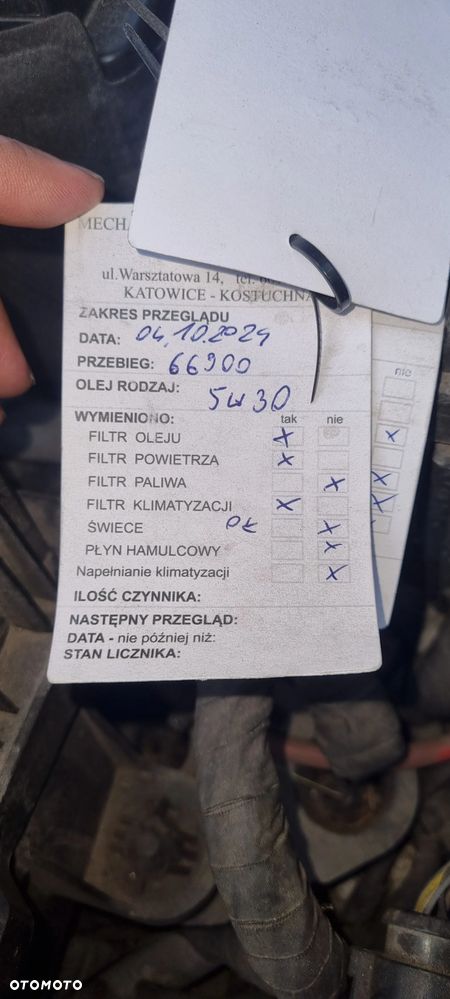 ul.Warsztatowa 14, tel.
KATOWICE - KOSTUCHNA
ZAKRES PRZEGLĄDU
DATA: 04.10.2024
PRZEBIEG: 66900
OLEJ RODZAJ: 5W30
WYMIENIONO: tak nie
FILTR OLEJU X
FILTR POWIETRZA X
FILTR PALIWA X
FILTR KLIMATYZACJI X
ŚWIECE X
PŁYN HAMULCOWY X
Napełnianie klimatyzacji X
ILOŚĆ CZYNNIKA:
NASTĘPNY PRZEGLĄD:
DATA - nie później niż:
STAN LICZNIKA:
nie
X
X
X
OTOMOTO